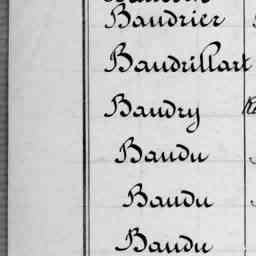 Baudrier
Baudrillart
Baudry
Baudu
Baudu
Baudu